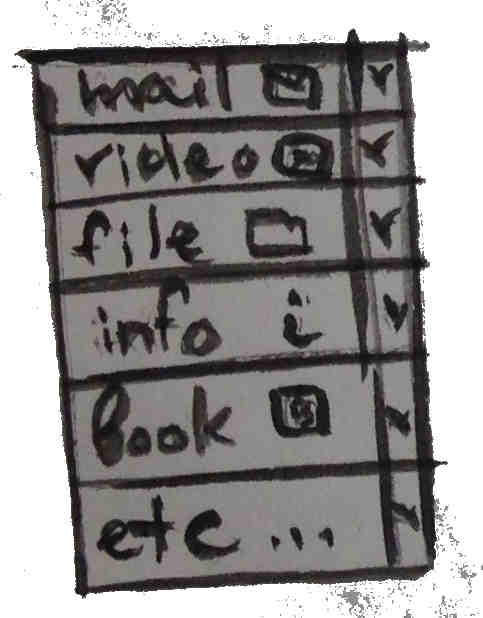 mail
video
file
info i
book
etc...